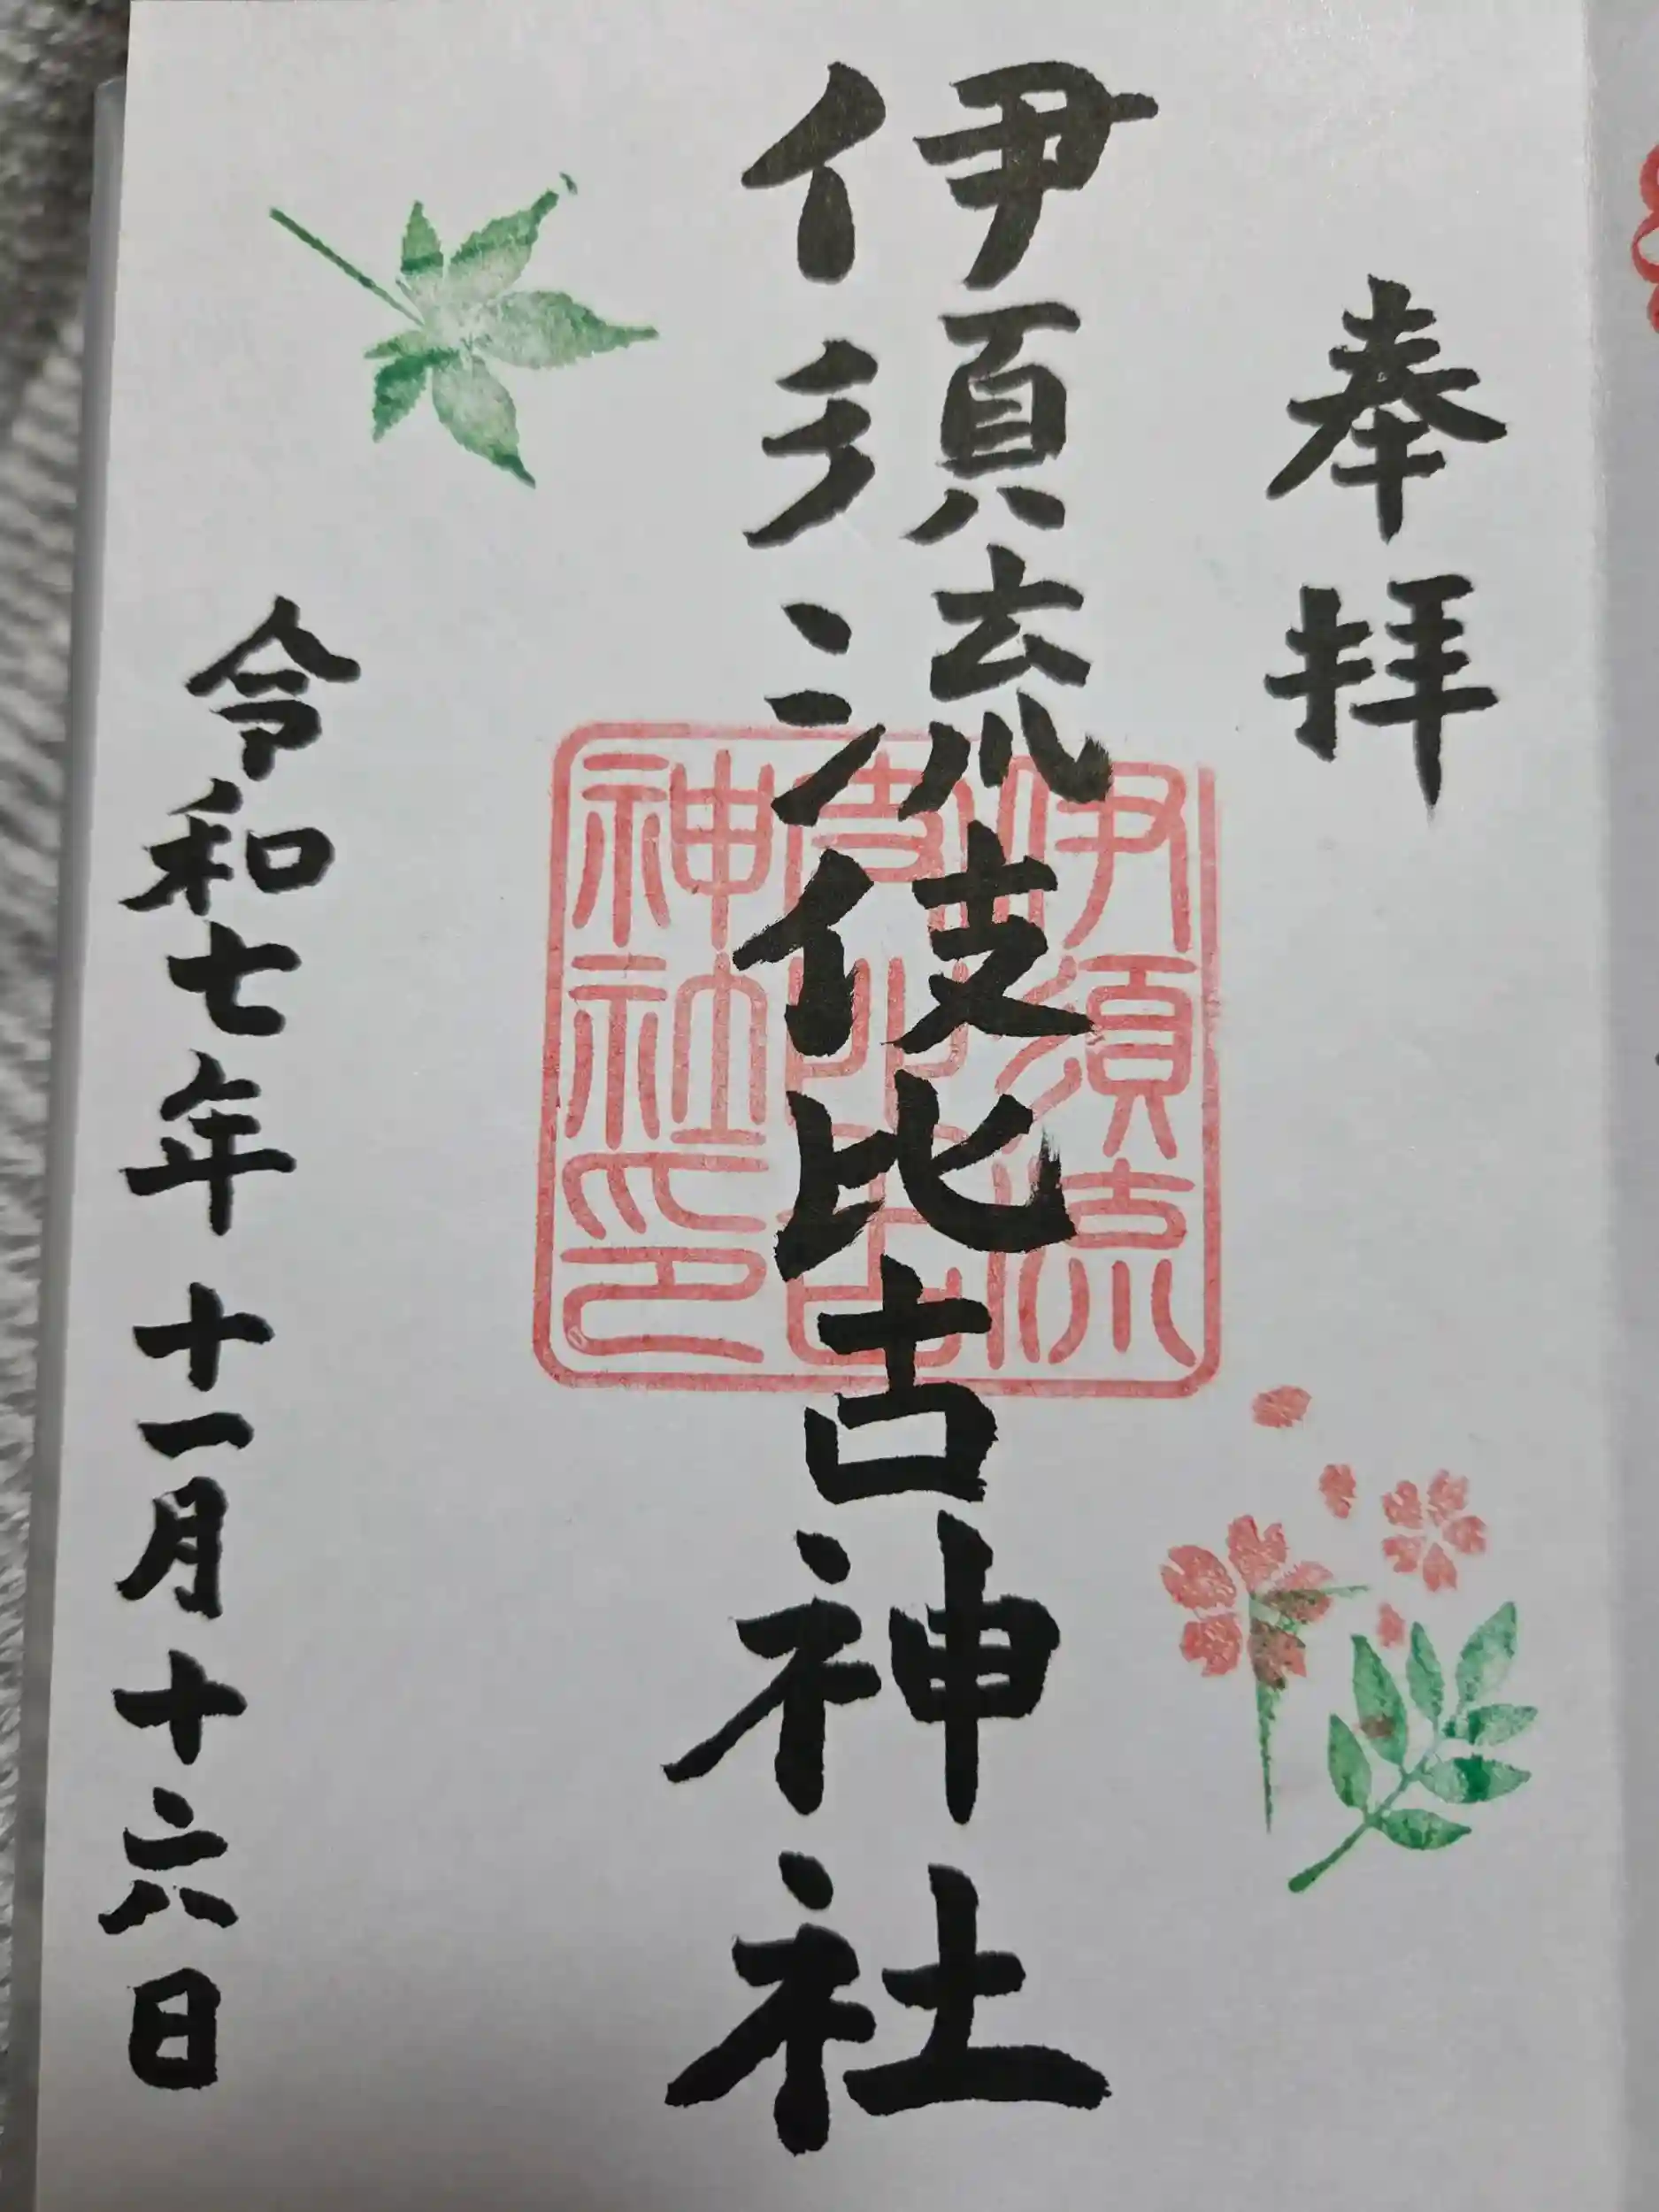 奉拝
伊須流伎比古神社
伊須流
神社印
令和七年十一月十六日